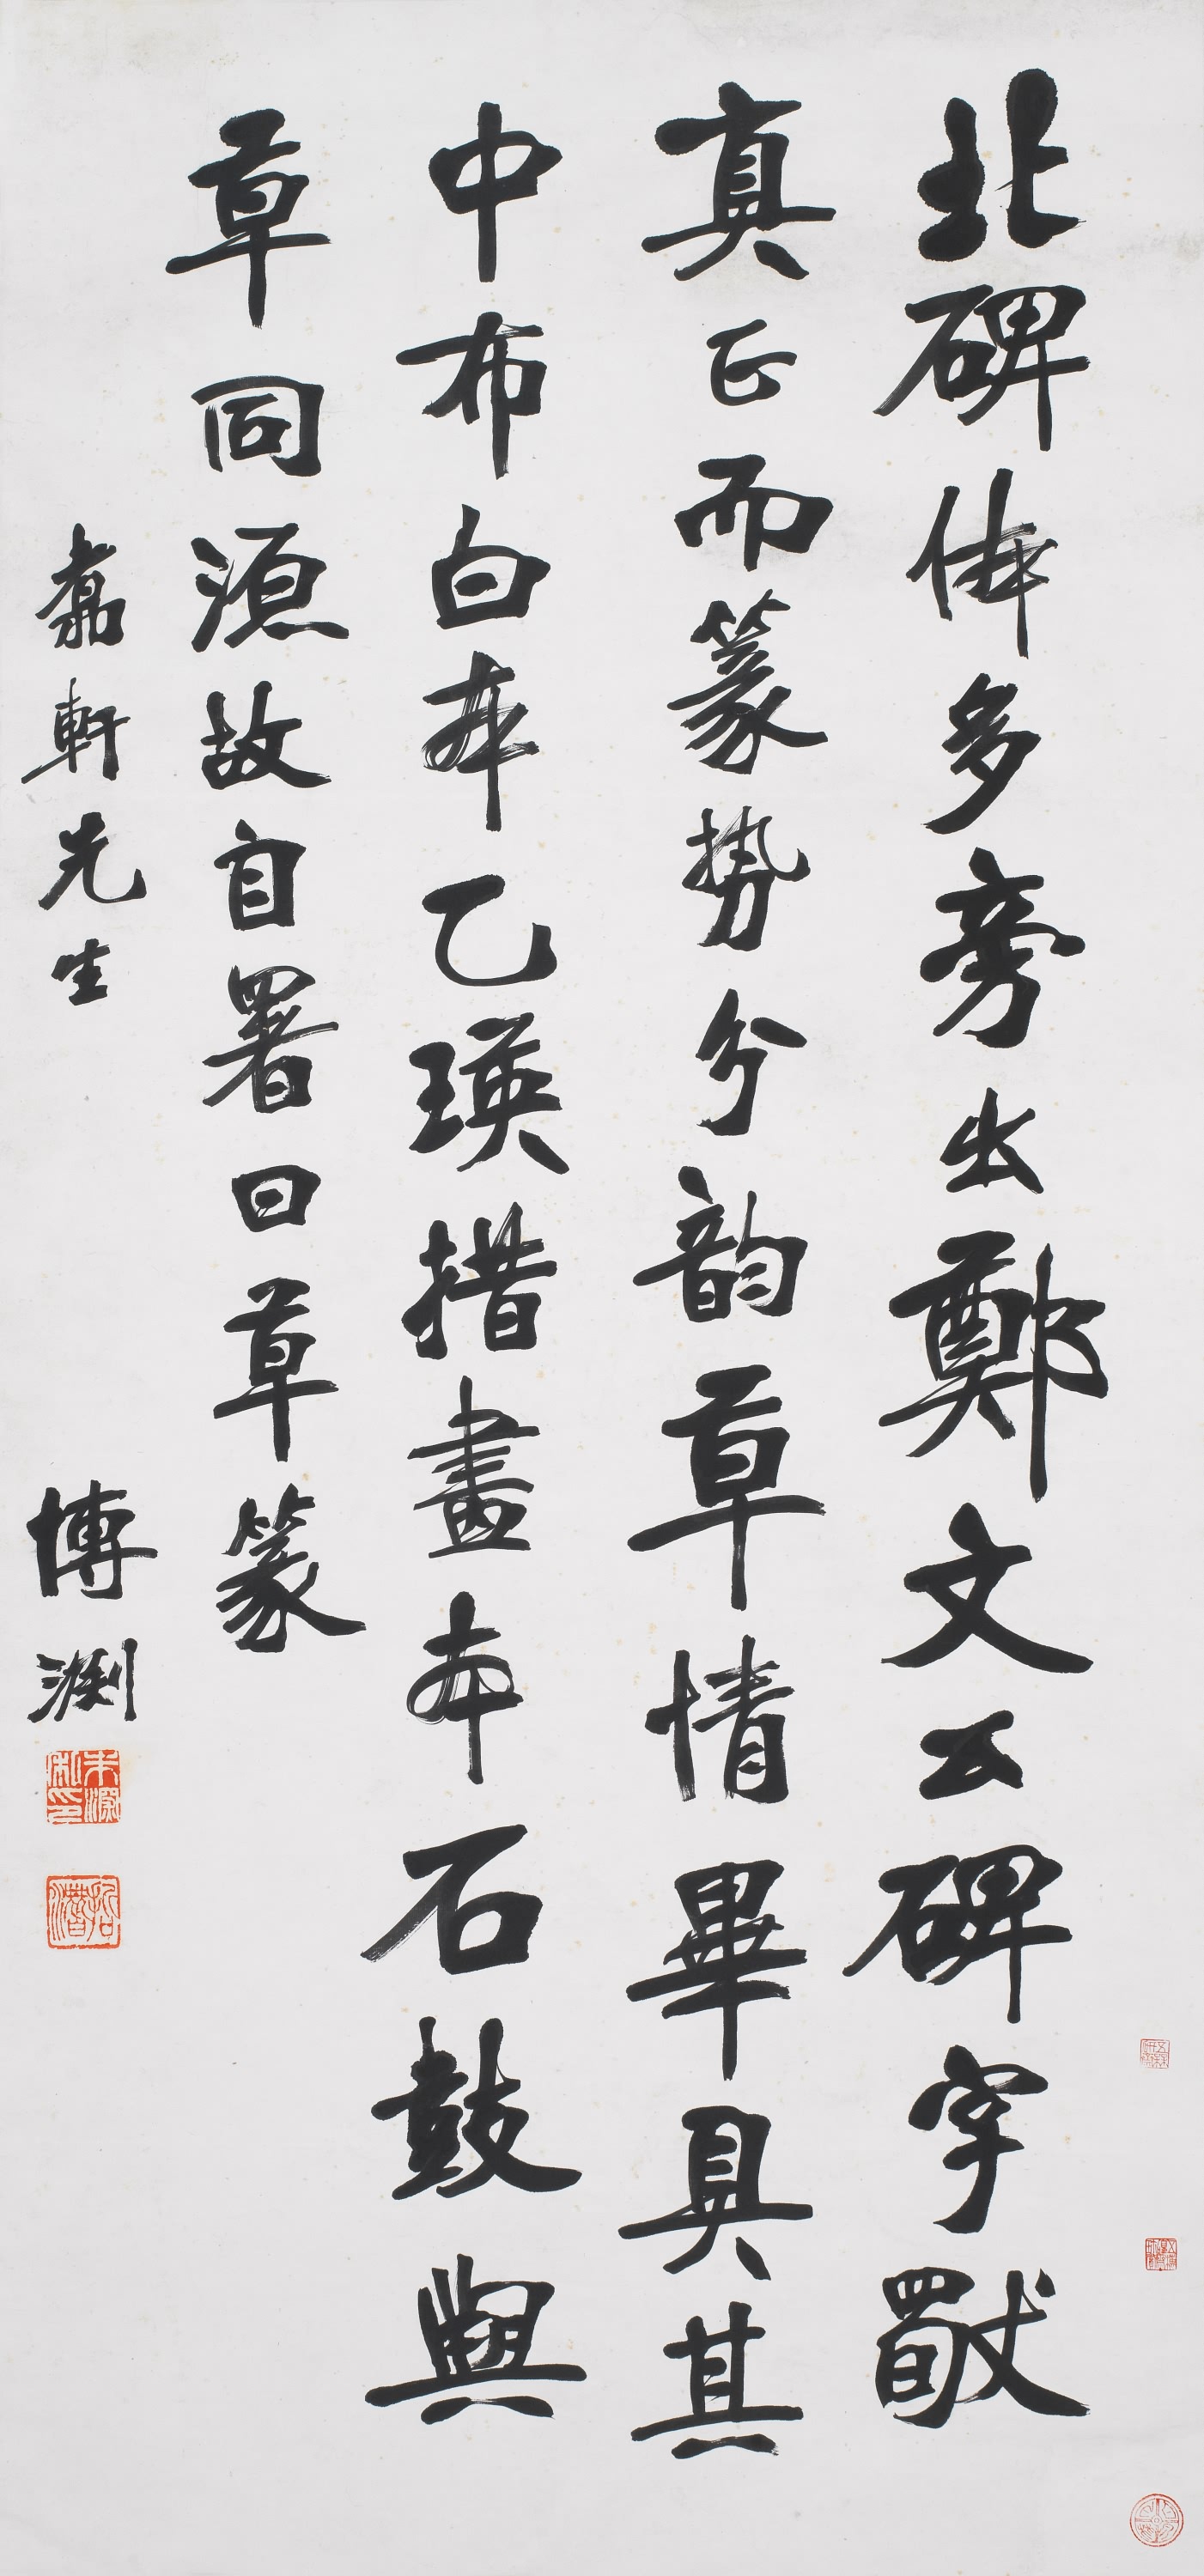 北碑体多旁出鄭文公碑字獨
真正而篆势分韵草情畢具其
中布白本乙瑛措畫本石鼓與
草同源故自署曰草篆
嘉軒先生
博渊
朱深私印